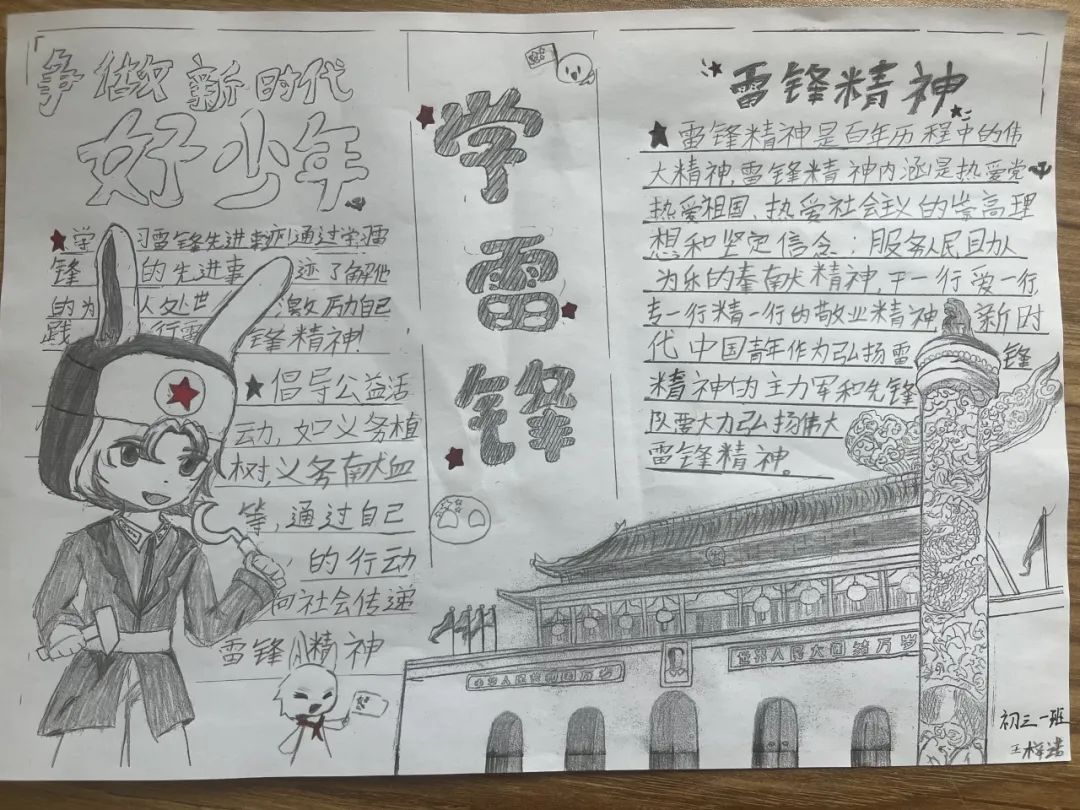 争做新时代
好少年
学习雷锋先进事迹!通过学习雷
锋的先进事迹了解他
的为人处世激励自己
践行雷锋精神!
倡导公益活
动,如义务植
树,义务献血
等,通过自己
的行动
向社会传递
雷锋精神
学
雷
锋
雷锋精神
雷锋精神是百年历程中的伟
大精神,雷锋精神内涵是热爱党
热爱祖国、热爱社会主义的崇高理
想和坚定信念;服务人民助人
为乐的奉献精神,干一行爱一行,
专一行精一行的敬业精神。新时
代中国青年作为弘扬雷锋
精神的主力军和先锋
队要大力弘扬伟大
雷锋精神。
中华人民共和国万岁
世界人民大团结万岁
初三一班